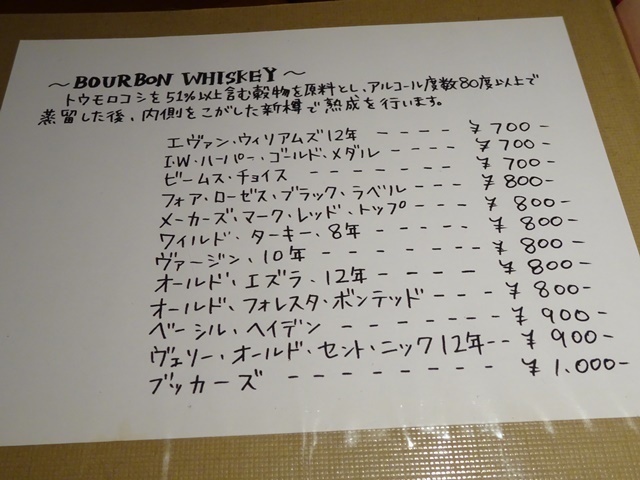 ～BOURBON WHISKEY～
トウモロコシを51%以上含む穀物を原料とし、アルコール度数80度以上で
蒸留した後、内側をこがした新樽で熟成を行います。
エヴァン・ウィリアムズ12年 ---- ¥700-
I.W・ハーパー・ゴールド・メダル ---- ¥700-
ビームス・チョイス ------- ¥700-
フォア・ローゼス・ブラック・ラベル --- ¥800-
メーカーズ・マーク・レッド・トップ --- ¥800-
ワイルド・ターキー・8年 ---- ¥800-
ヴァージン・10年 ----- ¥800-
オールド・エズラ・12年 ---- ¥800-
オールド・フォレスタ・ボンテッド --- ¥800-
ベーシル・ヘイデン ------ ¥900-
ヴェリー・オールド・セント・ニック12年-- ¥900-
ブッカーズ ------- ¥1,000-